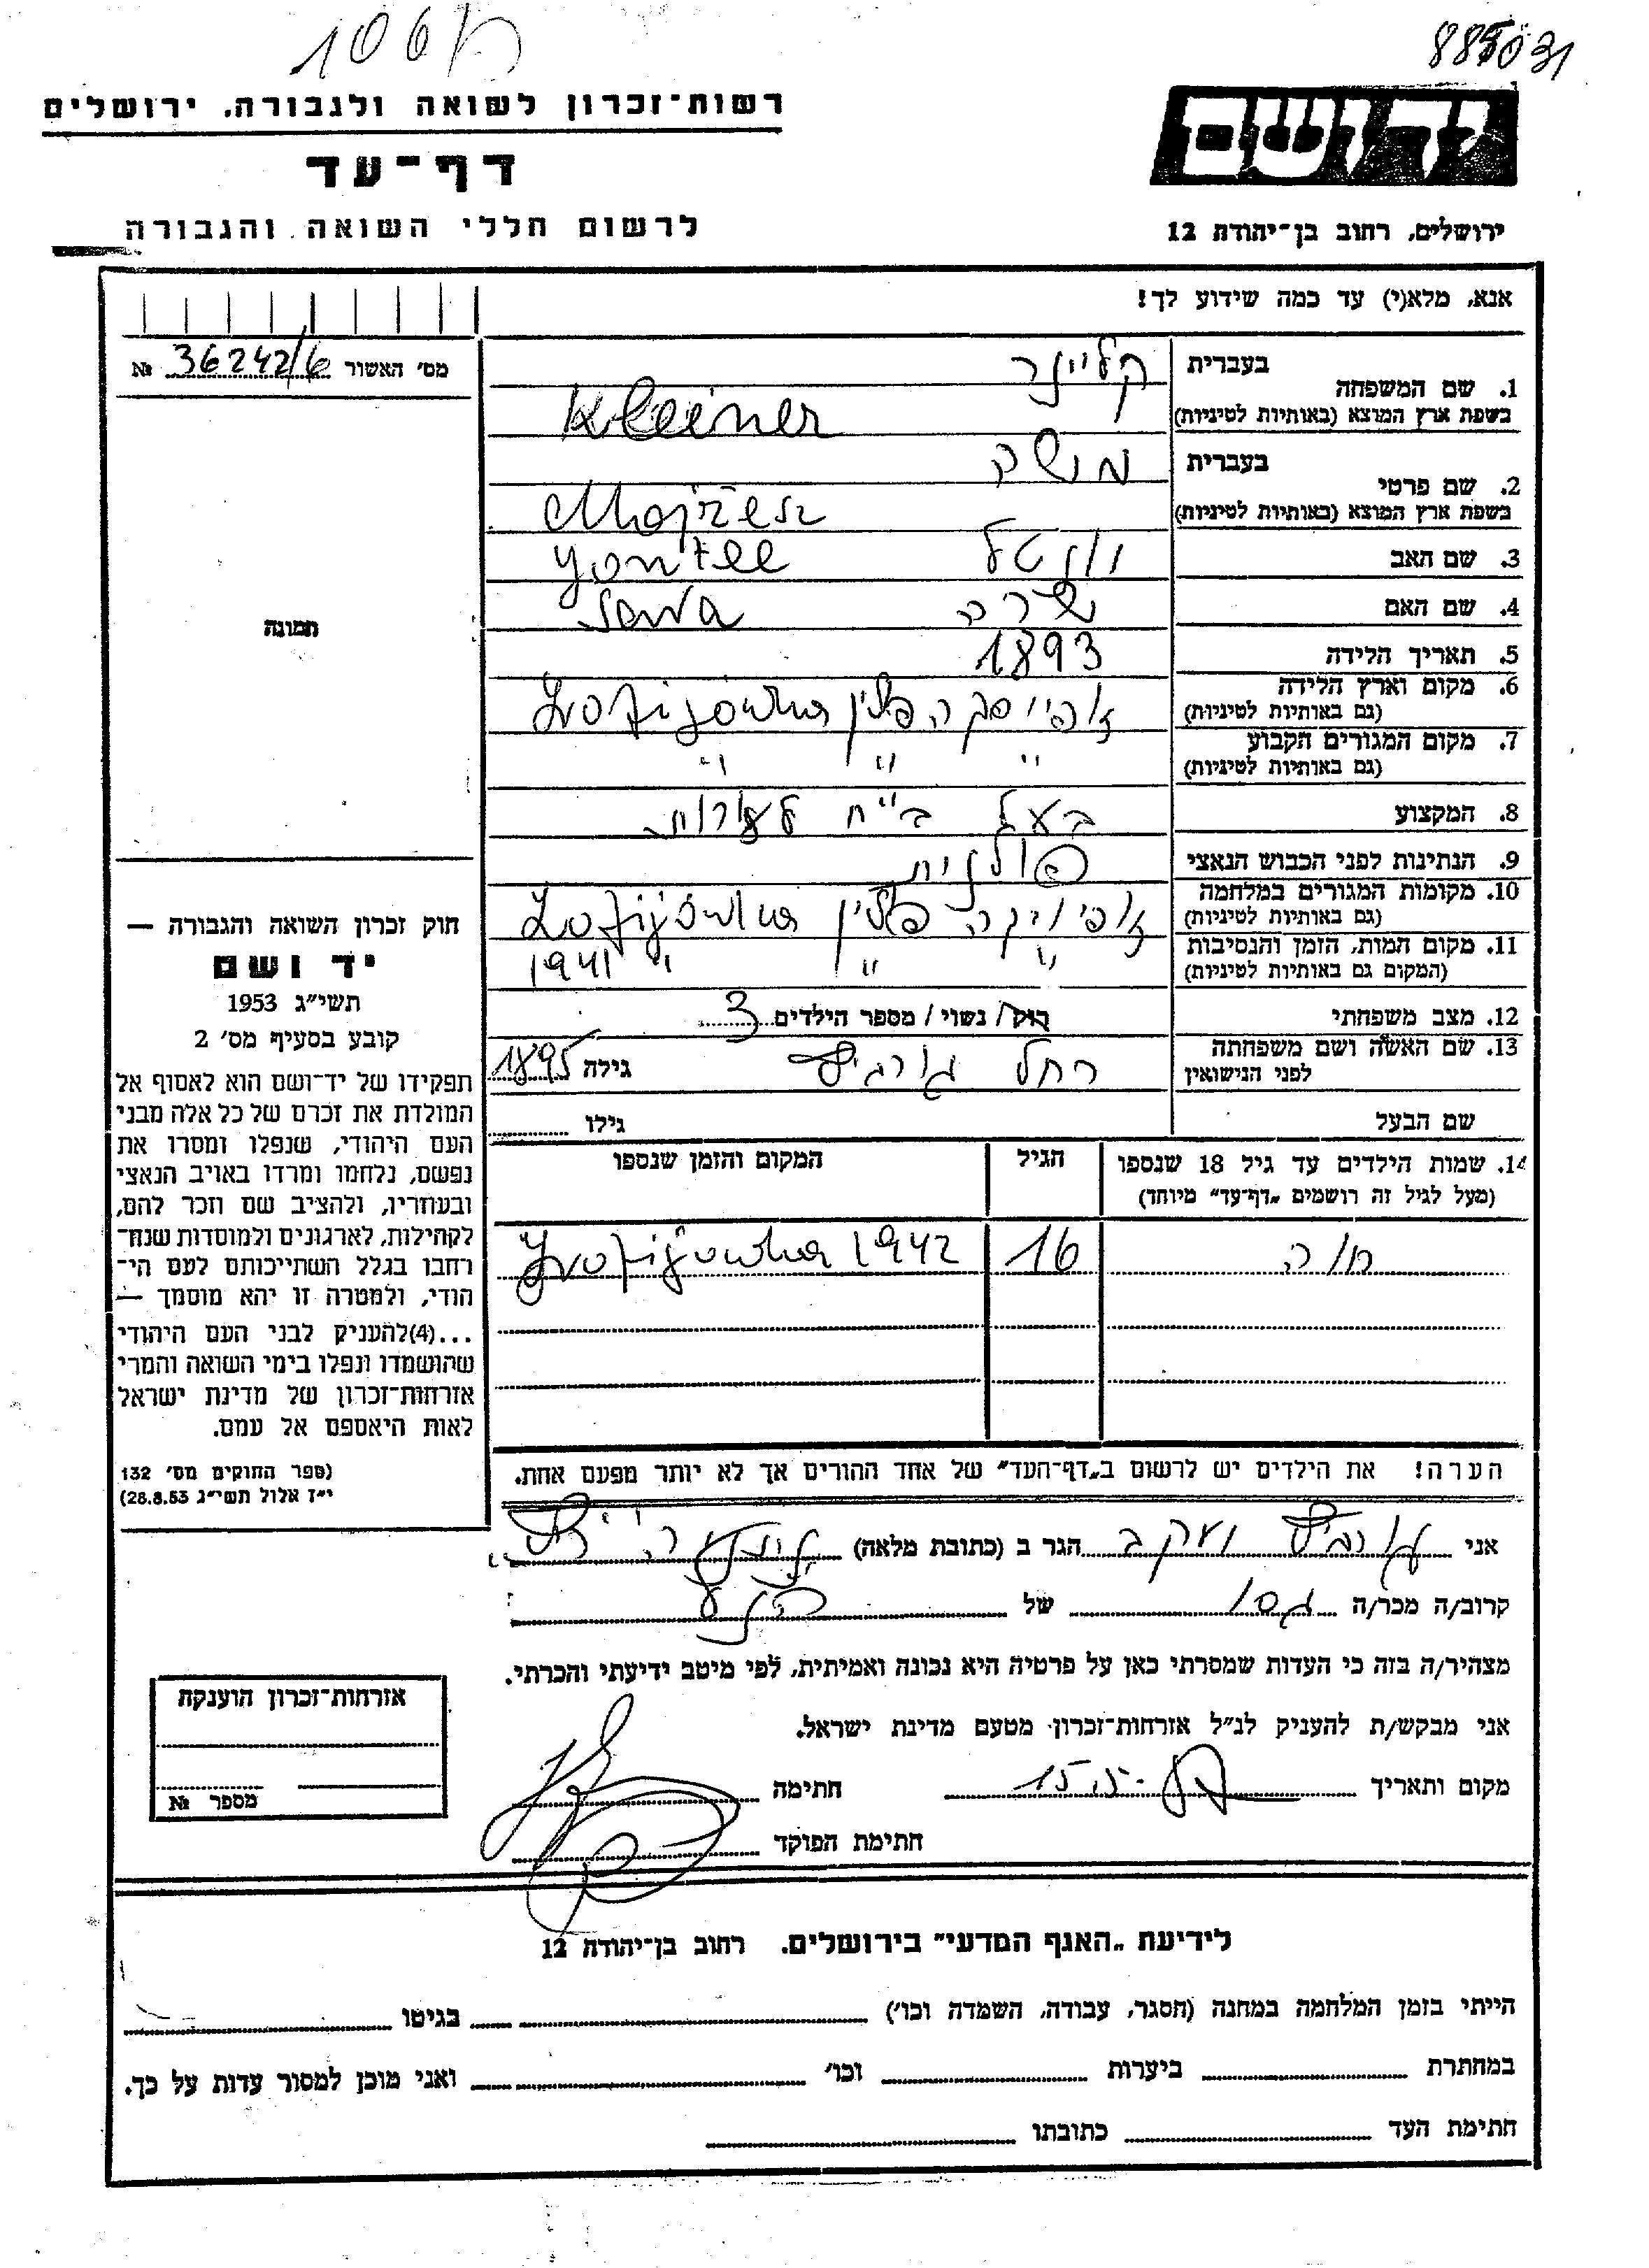 885031
רשות-זכרון לשואה ולגבורה, ירושלים
יד ושם
דף-עד
לרשום חללי השואה והגבורה
ירושלים, רחוב בן-יהודה 12
אנא, מלא(י) עד כמה שידוע לך!
מס' האשור 36242/6 №
1. שם המשפחה
בעברית קליינר
בשפת ארץ המוצא (באותיות לטיניות) Kleiner
2. שם פרטי
בעברית מושה
בשפת ארץ המוצא (באותיות לטיניות) Mojżesz
3. שם האב יונטל Yontel
4. שם האם שרה Sara
5. תאריך הלידה 1893
6. מקום וארץ הלידה
(גם באותיות לטיניות) פולין
7. מקום המגורים הקבוע
(גם באותיות לטיניות) " " "
8. המקצוע בעל בי"ח לעורות
9. הנתינות לפני הכבוש הנאצי פולנית
10. מקומות המגורים במלחמה
(גם באותיות לטיניות) פולין
11. מקום המות, הזמן והנסיבות
(המקום גם באותיות לטיניות) " " " 1941
12. מצב משפחתי רוק / נשוי / מספר הילדים 3
13. שם האשה ושם משפחתה
לפני הנישואין רחל גילה 1895
שם הבעל גילו
14. שמות הילדים עד גיל 18 שנספו
(מעל לגיל זה רושמים "דף-עד" מיוחד)
הגיל
המקום והזמן שנספו
חוה 16 1942
הערה! את הילדים יש לרשום ב"דף-העד" של אחד ההורים אך לא יותר מפעם אחת.
תמונה
חוק זכרון השואה והגבורה —
יד ושם
תשי"ג 1953
קובע בסעיף מס' 2
תפקידו של יד-ושם הוא לאסוף אל
המולדת את זכרם של כל אלה מבני
העם היהודי, שנפלו ומסרו את
נפשם, נלחמו ומרדו באויב הנאצי
ובעוזריו, ולהציב שם וזכר להם,
לקהילות, לארגונים ולמוסדות שנח-
רבו בגלל השתייכותם לעם הי-
הודי, ולמטרה זו יהא מוסמך —
...(4)להעניק לבני העם היהודי
שהושמדו ונפלו בימי השואה והמרי
אזרחות-זכרון של מדינת ישראל
לאות היאספם אל עמם.
(ספר החוקים מס' 132
י"ז אלול תשי"ג 28.8.53)
אני יעקב הגר ב (כתובת מלאה)
קרוב/ה מכר/ה גסו של הנ"ע
מצהיר/ה בזה כי העדות שמסרתי כאן על פרטיה היא נכונה ואמיתית, לפי מיטב ידיעתי והכרתי.
אני מבקש/ת להעניק לנ"ל אזרחות-זכרון מטעם מדינת ישראל.
מקום ותאריך חתימה
חתימת הפוקד
אזרחות-זכרון הוענקה
מספר №
לידיעת "האגף המדעי" בירושלים. רחוב בן-יהודה 12
הייתי בזמן המלחמה במחנה (הסגר, עבודה, השמדה וכו') בגיטו
במחתרת ביערות וכו' ואני מוכן למסור עדות על כך.
חתימת העד כתובתו